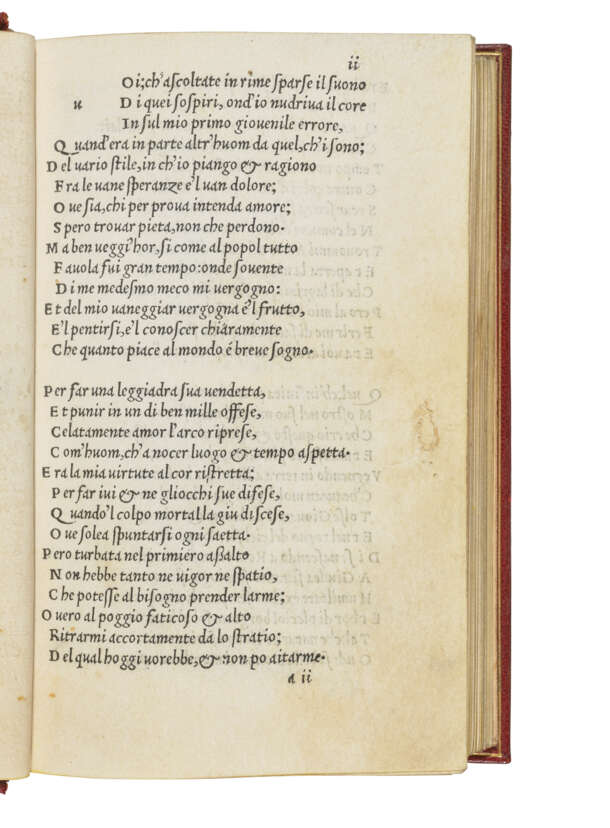 ii
O i; ch'ascoltate in rime sparse il suono
u D i quei sospiri, ond'io nudriua il core
I n sul mio primo giouenile errore,
Q uand'era in parte altr'huom da quel, ch'i sono;
D el uario stile, in ch'io piango & ragiono
F ra le uane speranze e'l uan dolore;
O ue sia, chi per proua intenda amore;
S pero trouar pieta, non che perdono.
M a ben ueggi'hor, si come al popol tutto
F auola fui gran tempo: onde souente
D i me medesmo meco mi uergogno:
E t del mio uaneggiar uergogna è'l frutto,
E 'l pentirsi, e'l conoscer chiaramente
C he quanto piace al mondo é breue sogno.
P er far una leggiadra sua uendetta,
E t punir in un di ben mille offese,
C elatamente amor l'arco riprese,
C om'huom, ch'a nocer luogo & tempo aspetta.
E ra la mia uirtute al cor ristretta;
P er far iui & ne gliocchi sue difese,
Q uando'l colpo mortal la giu discese,
O ue solea spuntarsi ogni saetta.
P ero turbata nel primiero aßalto
N on hebbe tanto ne uigor ne spatio,
C he potesse al bisogno prender larme;
O uero al poggio faticoso & alto
R itrarmi accortamente da lo stratio;
D el qual hoggi uorebbe, & non po aitarme.
a ii